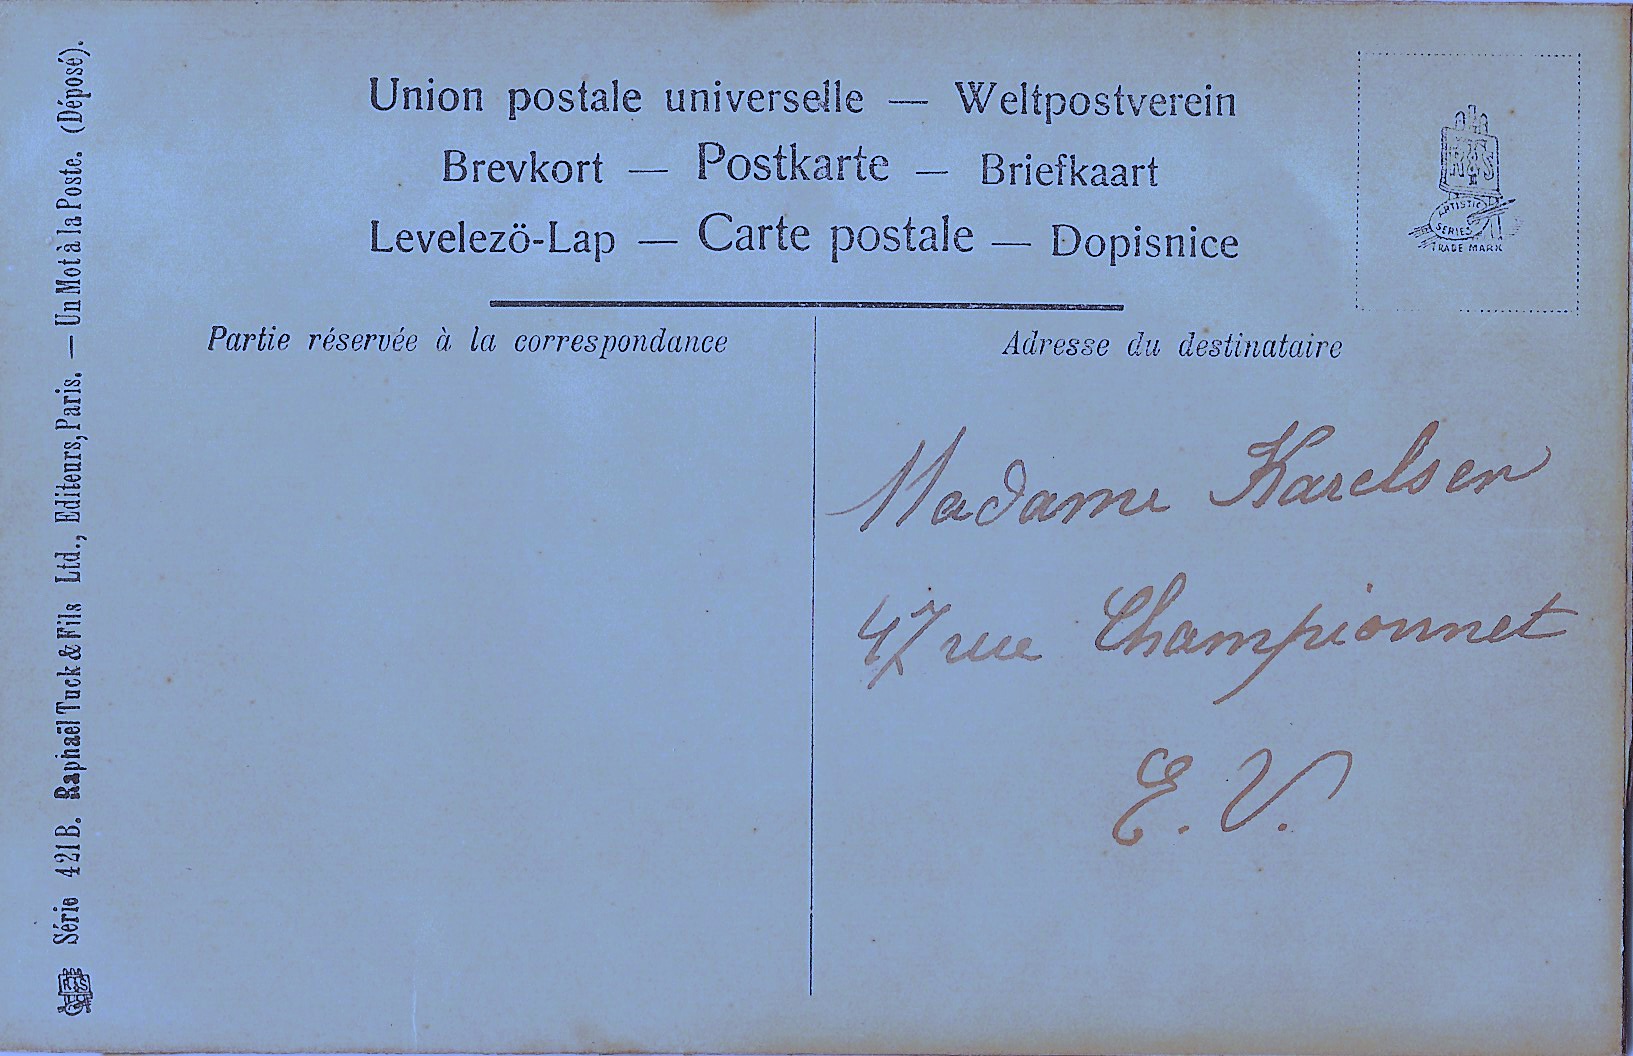 Union postale universelle — Weltpostverein
Brevkort — Postkarte — Briefkaart
Levelezö-Lap — Carte postale — Dopisnice
R T & S
ARTISTIC
SERIES
TRADE MARK
Partie réservée à la correspondance
Adresse du destinataire
Madame Karelsen
47 rue Championnet
E. V.
Série 421 B. Raphaël Tuck & Fils Ltd., Editeurs, Paris. — Un Mot à la Poste. (Déposé).